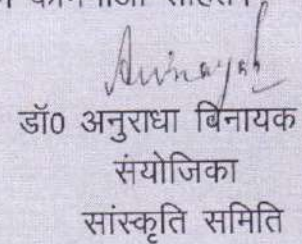 सहित।
डॉ0 अनुराधा बिनायक
संयोजिका
सांस्कृति समिति